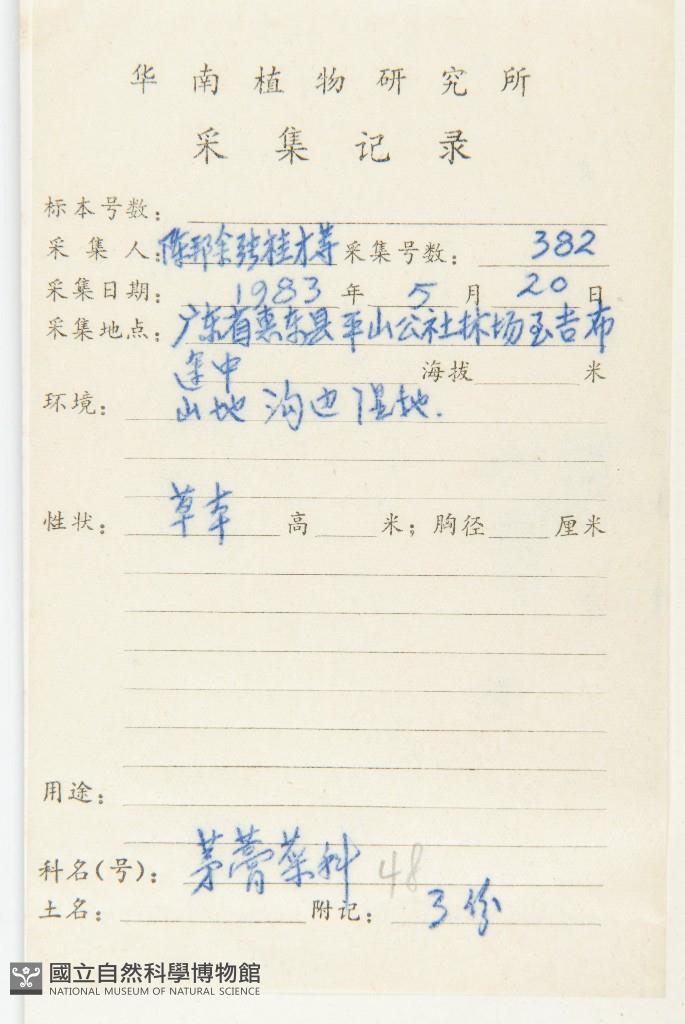 华南植物研究所
采集记录
标本号数：
采集人：陈邦余 张桂才等 采集号数：382
采集日期：1983年5月20日
采集地点：广东省惠东县平山公社林场至吉布
途中 海拔 米
环境：山地沟边湿地.
性状：草本 高 米；胸径 厘米
用途：
科名(号)：茅膏菜科 48
土名： 附记：3份
國立自然科學博物館
NATIONAL MUSEUM OF NATURAL SCIENCE